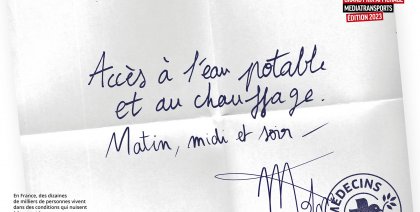 GRAND PRIX AFFICHAGE
MEDIATRANSPORTS
ÉDITION 2023
Accès à l'eau potable
et au chauffage.
Matin, midi et soir –
MÉDECINS
En France, des dizaines
de milliers de personnes vivent
dans des conditions qui nuisent